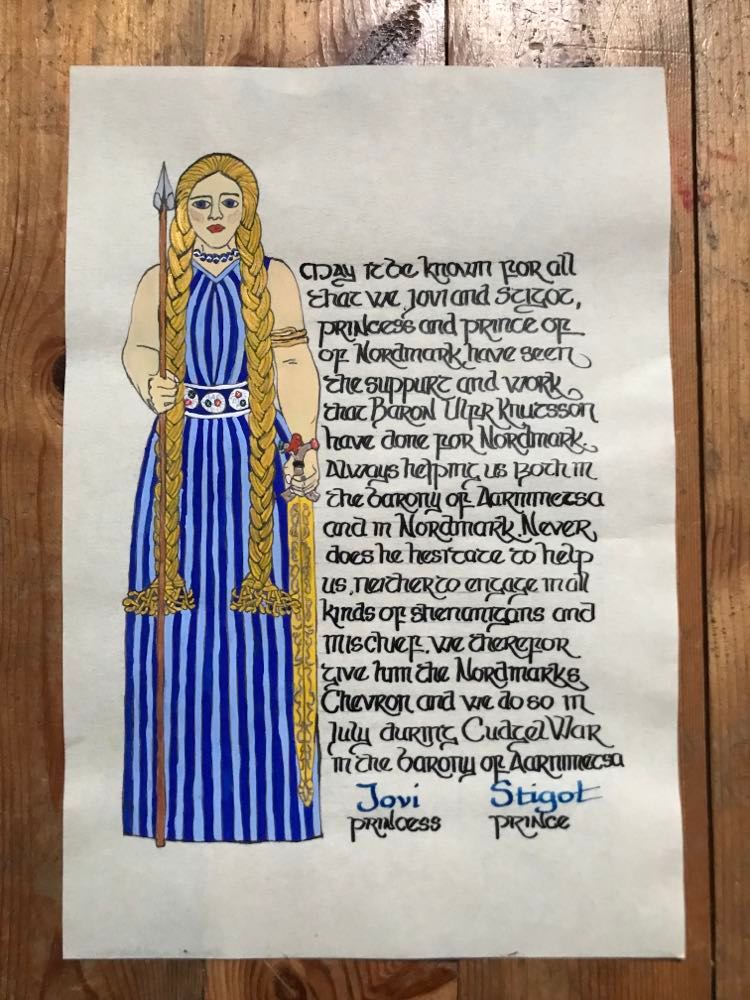 May it be known for all
that we, Jovi and Stigot,
princess and prince of
of Nordmark, have seen
the support and work
that Baron Ulfr Knutsson
have done for Nordmark.
Always helping us both in
the barony of Aarnimetsa
and in Nordmark. Never
does he hesitate to help
us, neither to engage in all
kinds of shenanigans and
mischief. We therefor
give him the Nordmarks
Chevron and we do so in
July during Cudgel War
in the barony of Aarnimetsa
Jovi Stigot
princess prince